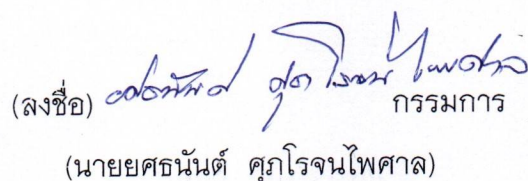 (ลงชื่อ) ยศธนันต์ ศุภโรจนไพศาล กรรมการ
(นายยศธนันต์ ศุภโรจนไพศาล)